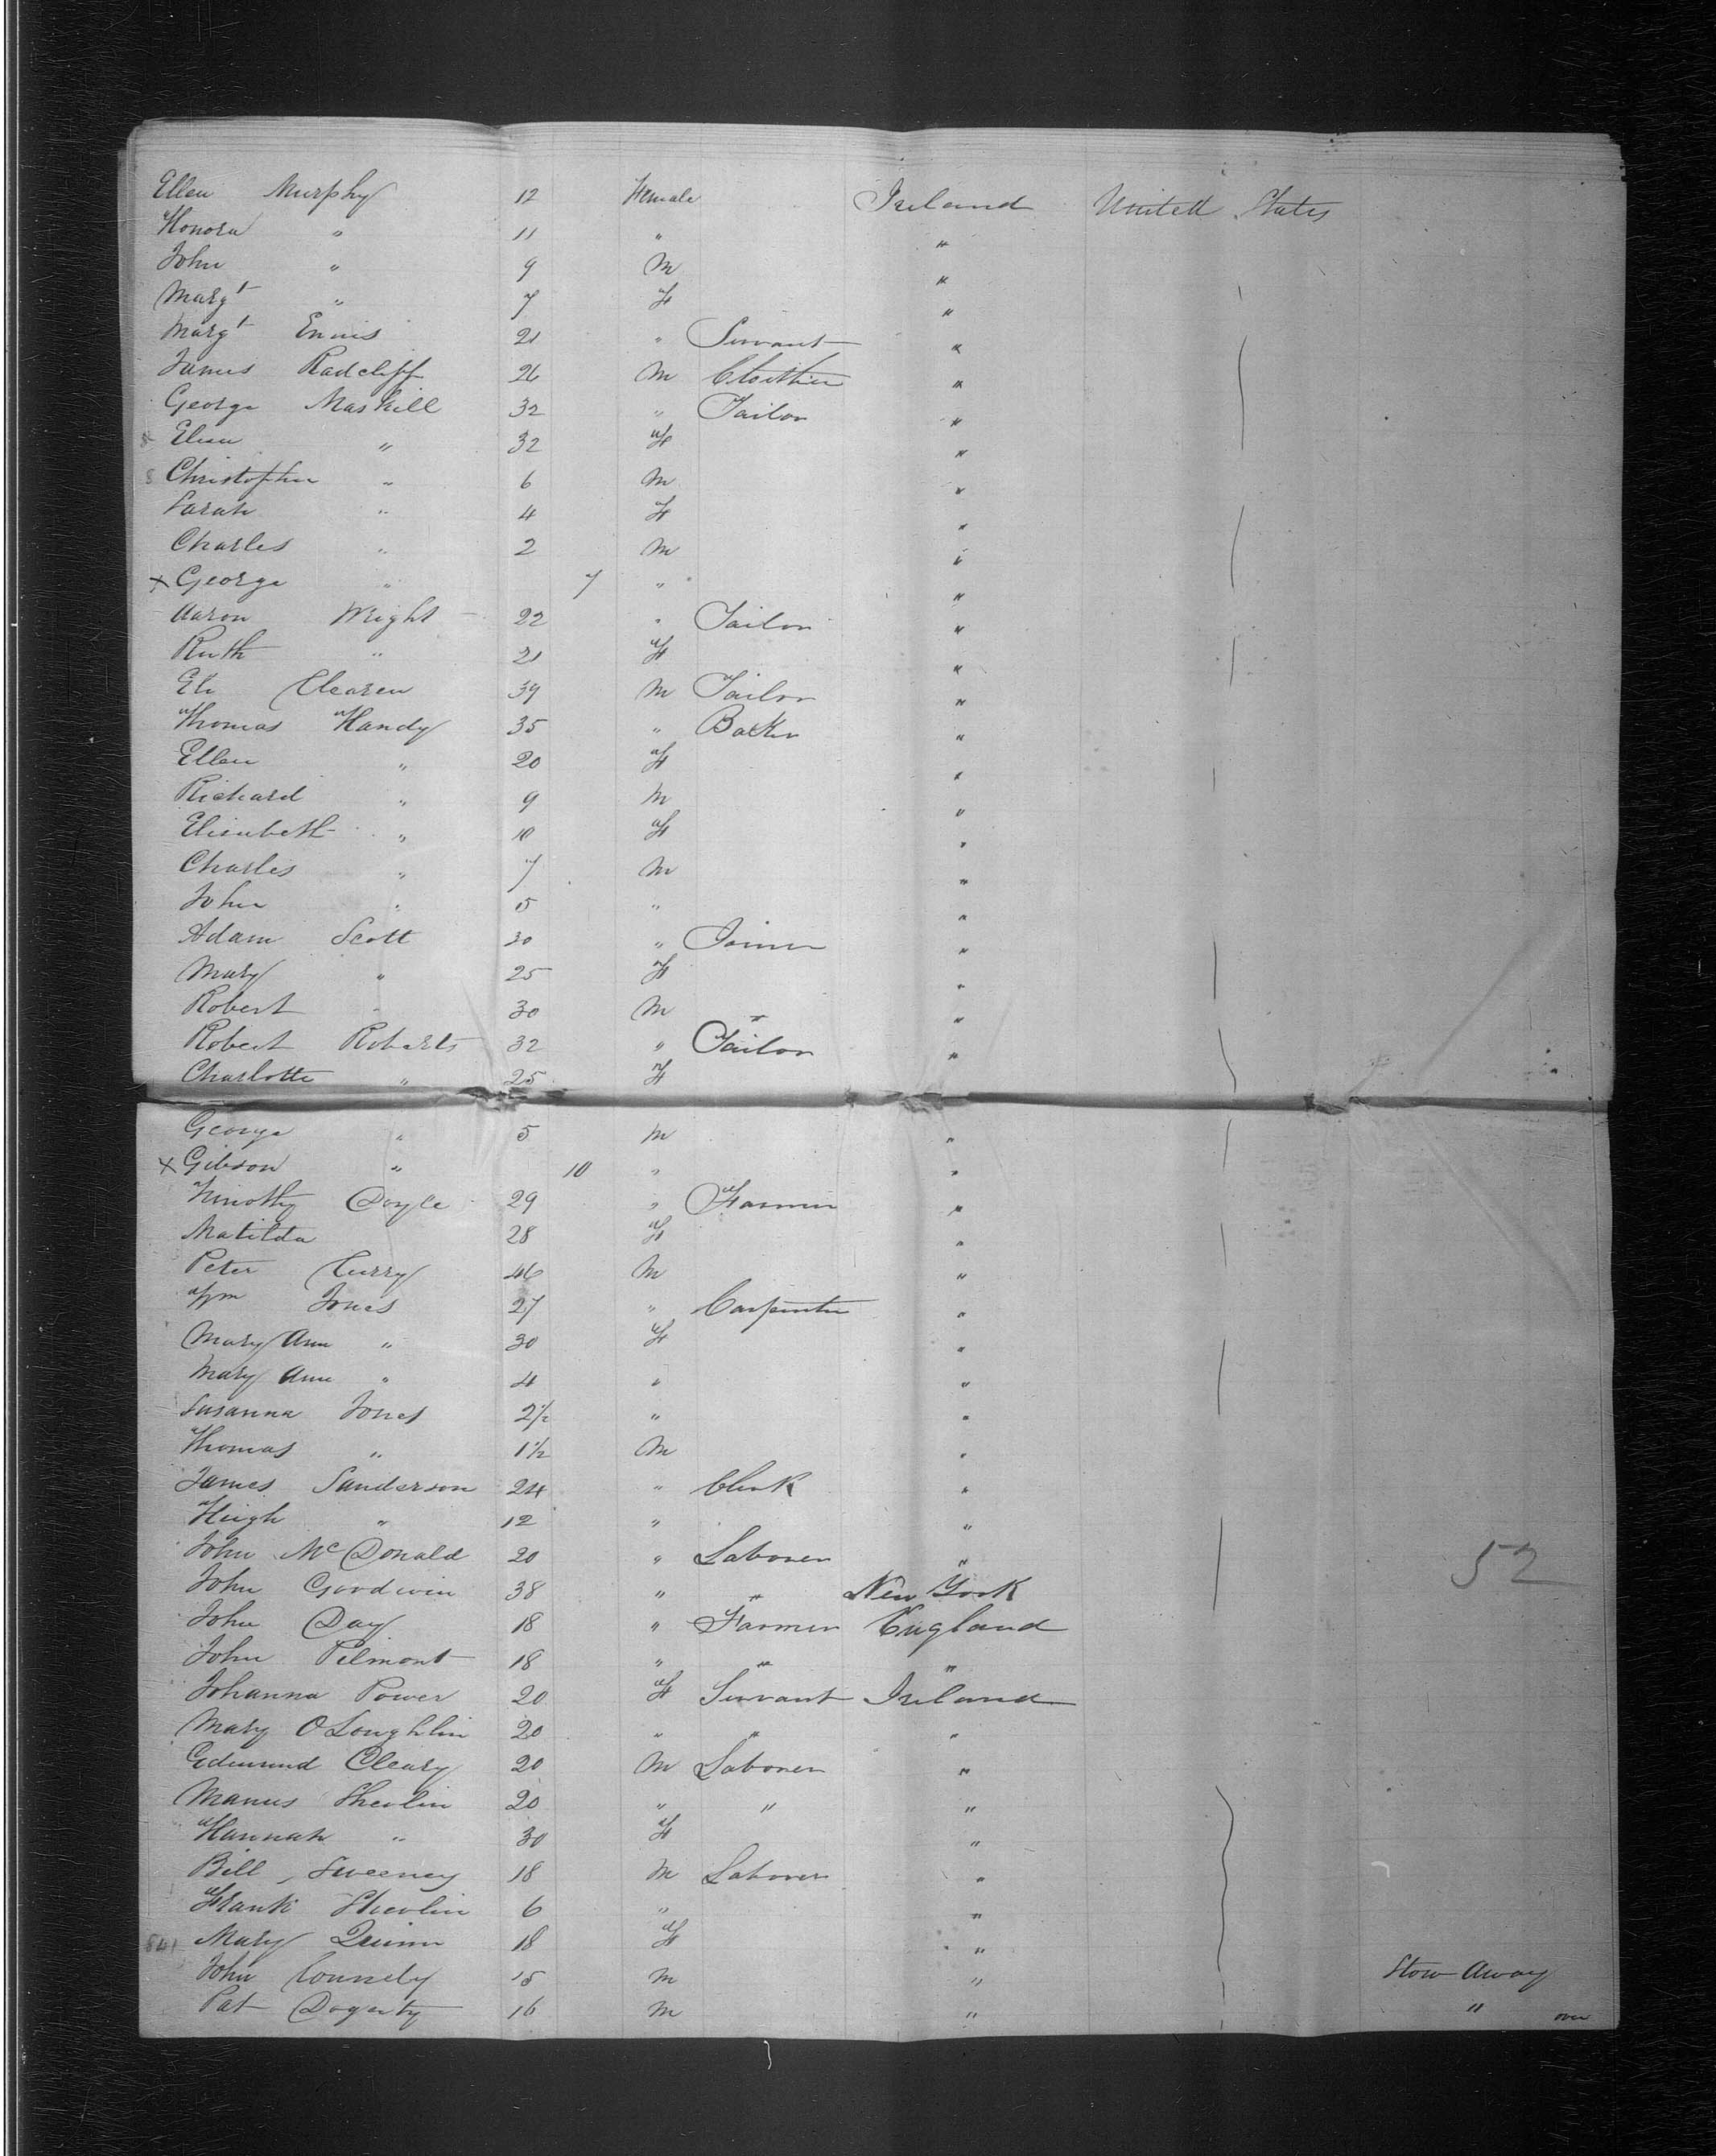 Ellen Murphy 12 Female Ireland United States
Honora " 11 " "
John " 9 M "
Margt " 7 F "
Margt Ennis 21 " Servant "
James Radcliff 26 M Clothier "
George Maskill 32 " Tailor "
Eliza " 32 F "
Christopher " 6 M "
Sarah " 4 F "
Charles " 2 M "
x George " 7 " "
Aaron Wright 22 " Tailor "
Ruth " 21 F "
Eli Clearen 39 M Tailor "
Thomas Handy 35 " Baker "
Ellen " 20 F "
Richard " 9 M "
Elisabeth " 10 F "
Charles " 7 M "
John " 5 " "
Adam Scott 30 " Joiner "
Mary " 25 F "
Robert " 30 M " "
Robert Roberts 32 " Tailor "
Charlotte " 25 F
George " 5 M "
x Gibson " 10 " "
Timothy Doyle 29 " Farmer "
Matilda 28 F "
Peter Curry 46 M "
Wm Jones 27 " Carpenter "
Mary Ann " 30 F "
Mary Ann " 4 " "
Susanna Jones 2½ " "
Thomas " 1½ M "
James Sanderson 24 " Clerk "
Hugh " 12 " "
John McDonald 20 " Laborer "
52
John Goodwin 38 " " New York
John Day 18 " Farmer England
John Pilmont 18 " " "
Johanna Power 20 F Servant Ireland
Mary O Loughlin 20 " " "
Edmund Cleary 20 M Laborer "
Manus Shevlin 20 " " "
Hannah " 30 F "
Bill Sweeney 18 M Laborer "
Frank Shevlin 6 " "
841 Mary Quinn 18 F "
John Connely 15 M " Stow Away
Pat Dogerty 16 M " "
over